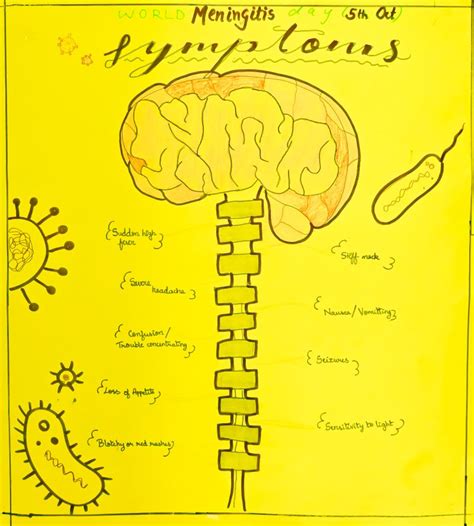 WORLD Meningitis day (5th Oct)
Symptoms
Sudden high
fever
Stiff neck
Severe
headache
Nausea/Vomitting
Confusion/
Trouble concentrating
Seizures
Loss of Appetite
Sensitivity to light
Blotchy or red rashes